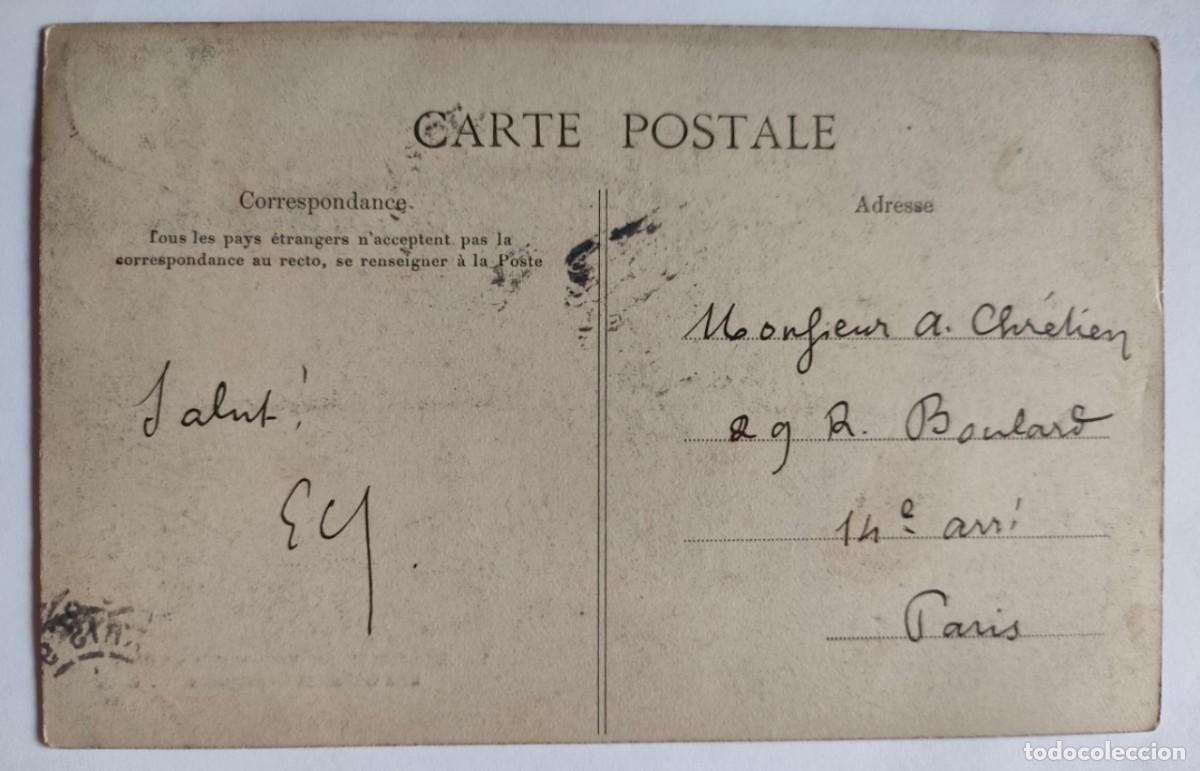 CARTE POSTALE
Correspondance
Tous les pays étrangers n'acceptent pas la
correspondance au recto, se renseigner à la Poste
Salut!
Adresse
Monsieur A. Chrétien
29 R. Boulard
14e arrt
Paris
todocoleccion